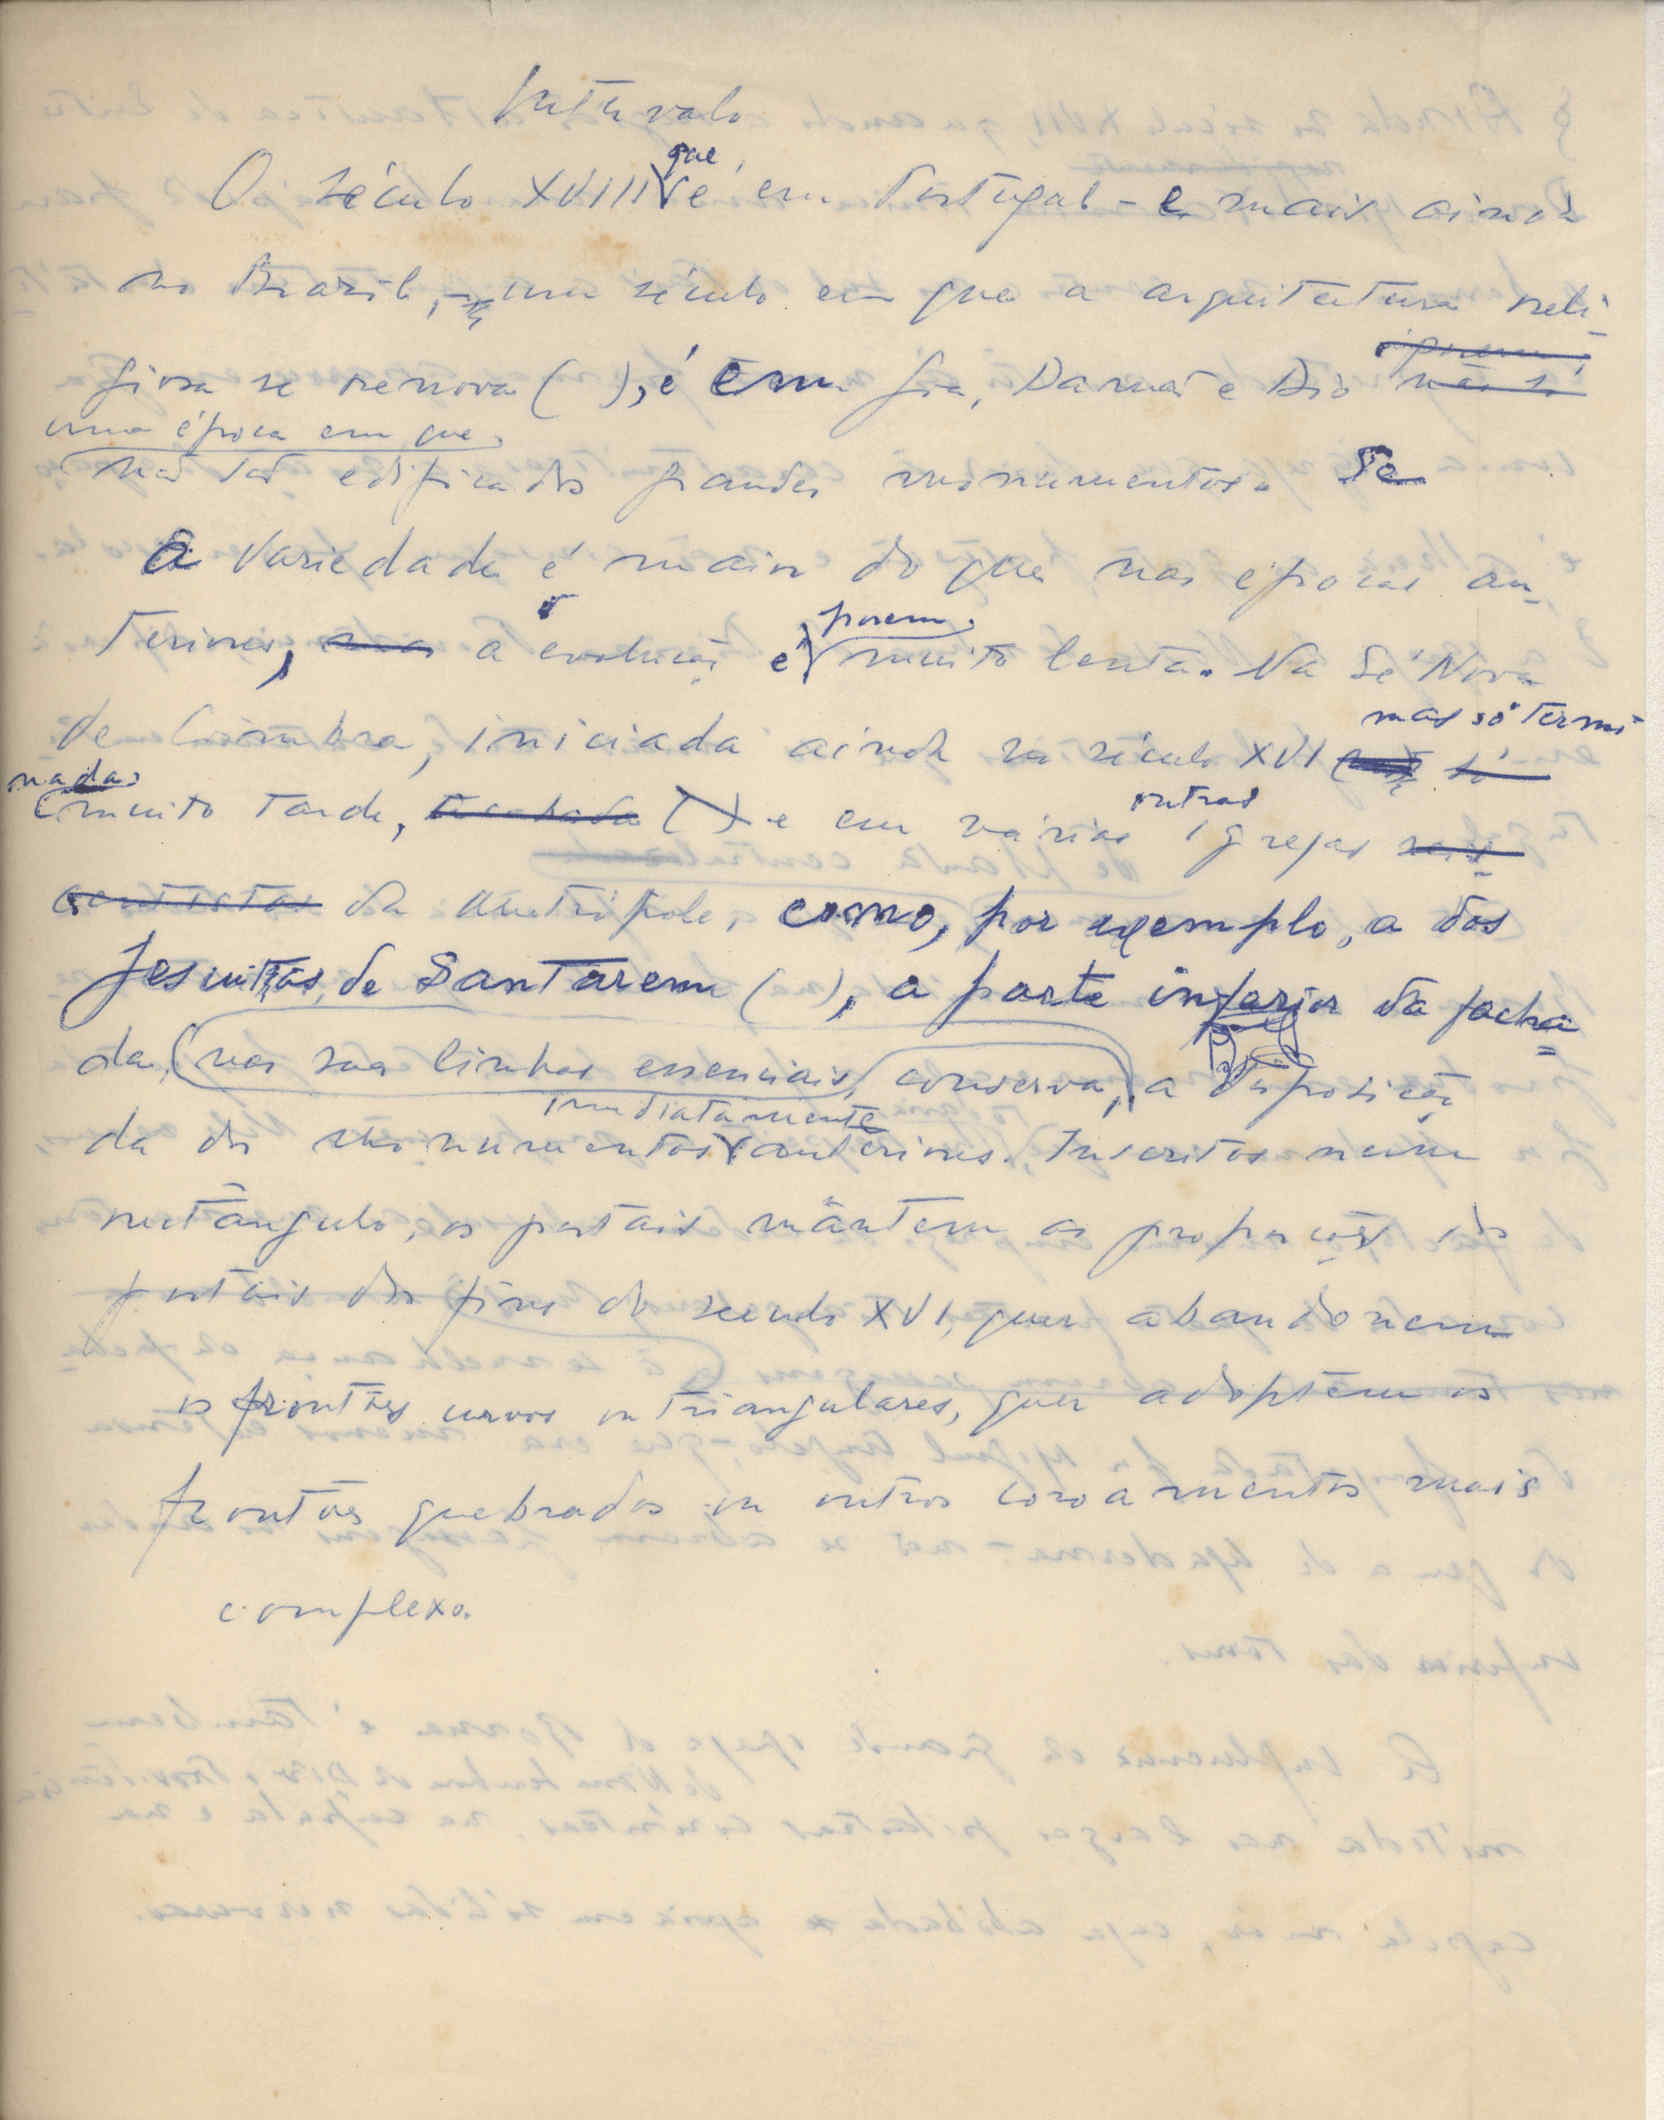 Intervalo
O século XVIII que é em Portugal - e mais ainda
no Brazil, - um século em que a arquitetura reli-
giosa se renova ( ), é em Goa, Damão e Dio não só
uma época em que
não são edificados grandes monumentos. Se
A variedade é maior do que nas épocas an-
teriores, mas a evolução é porem muito lenta. Na Sé Nova
mas só termi
de Coimbra, iniciada ainda no século XVI só
nada
muito tarde, acabada ( ) e em várias outras igrejas seis
centistas da metrópole, como, por exemplo, a dos
Jesuitas de Santarem ( ), a parte inferior da facha
da, nas suas linhas essenciais, conserva, a disposição
imediatamente
da dos monumentos anteriores. Inscritos num
rectângulo, os portais mântem as proporções dos
portais dos fins do seculo XVI, quer abandonem
os frontões curvos ou triangulares, quer adoptem os
frontões quebrados ou outros coroamentos mais
complexo.